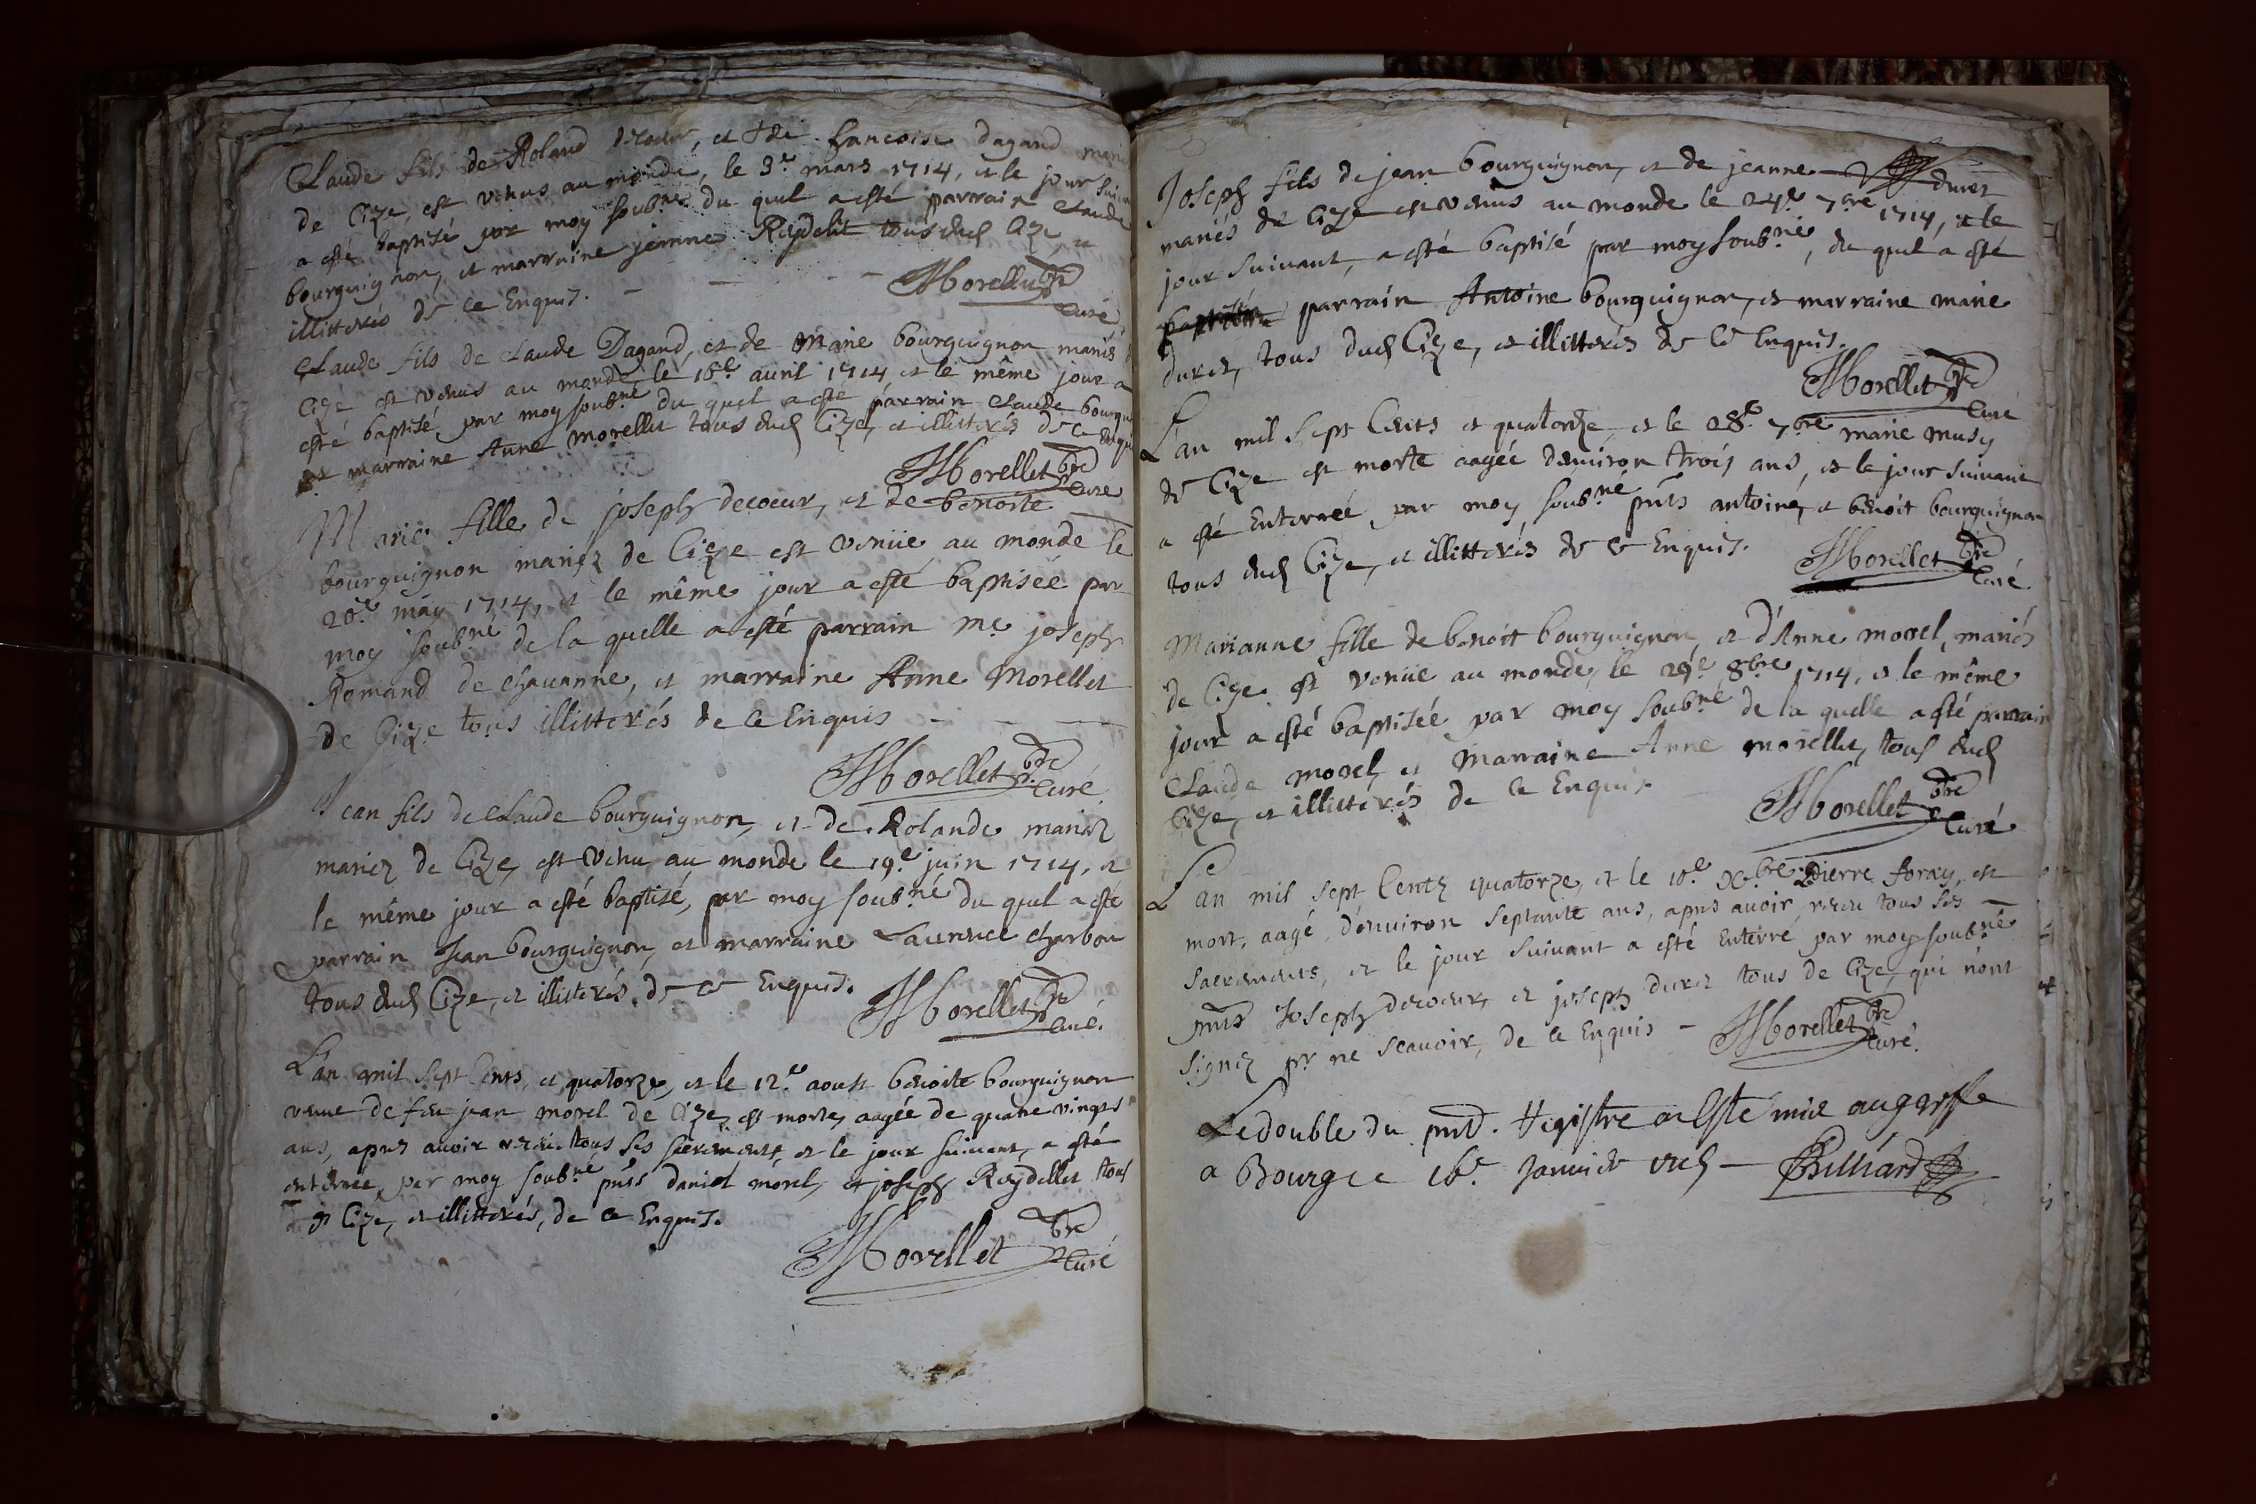 Claude fils de Roland decoeur, et de francoise dagand
de Cize, est venus au monde, le 3.e mars 1714, et le jour
a esté baptisé par moy soub.né du quel a esté parrain Claude
bourguignon, et marraine jeanne Reydelit tous dud Cize, et
illitterés de ce Enquis.
Morellet pbre
Curé
Claude fils de Claude Dagand, et de Marie bourguignon mariés
Cize est venus au monde, le 16.e avril 1714 et le même jour a
esté baptisé par moy soub.né du quel a esté parrain Claude
et marraine Anne morellet tous dud Cize, et illitterés de ce
Morellet pbre
Curé
Marie fille de joseph decoeur, et de benoite
bourguignon mariez de Cize est venüe au monde le
20.e may 1714, et le même jour a esté baptisée par
moy soub.né de la quelle a esté parrain m.e joseph
Romand de chavanne, et marraine Anne Morellet
de Cize tous illitterés de ce Enquis
Morellet pbre
Curé
Jean fils de Claude bourguignon, et de Rolande mariez
mariez de Cize, est venu au monde le 19.e juin 1714, et
le même jour a esté baptisé, par moy soub.né du quel a esté
parrain Jean bourguignon, et marraine Laurence charbon
tous dud Cize, et illiterés de ce Enquis.
Morellet pbre
Curé.
L'an mil sept Cents, et quatorze, et le 12.e aoust benoite bourguignon
veuve de feu jean morel de Cize, est morte, aagée de quatre vingts
ans, apres avoir receu tous ses sacrements, et le jour suivant, a esté
enterrée, par moy soub.né pnts daniel morel, et joseph Reydellet tous
de Cize, et illitterés, de ce Enquis.
Morellet pbre
Curé
Joseph fils de jean bourguignon, et de jeanne duret
mariés de Cize est venus au monde le 24.e 7bre 1714, et le
jour suivant, a esté baptisé par moy soub.né, du quel a esté
parrain Antoine bourguignon, et marraine marie
duret, tous dud Cize, et illitterés de ce Enquis.
Morellet pbre
Curé
L'an mil sept Cents et quatorze, et le 28.e 7bre marie musy
de Cize est morte aagée denviron trois ans, et le jour suivant
a esté Enterreé par moy soub.né pnts antoine, et benoit bourguignon
tous dud Cize, et illitterés de ce Enquis.
Morellet pbre
Curé
Marianne fille de benoit bourguignon, et d'Anne morel, mariés
de Cize est venüe au monde, le 29.e 8bre 1714, et le même
jour a esté baptisée par moy soub.né de la quelle a esté parrain
Claude morel, et marraine Anne morellet, tous dud
Cize, et illitterés de ce Enquis.
Morellet pbre
Curé
L'an mil sept Centz quatorze, et le 10.e Xbre Pierre foray, est
mort, aagé, d'environ septante ans, apres avoir receu tous ses
sacrements, et le jour suivant a esté Enterré par moy soub.né
pnts Joseph decoeur, et joseph duret tous de Cize, qui n'ont
signez pr ne scavoir, de ce Enquis
Morellet pbre
Curé.
Le double du pnt. Registre a Esté mis au greffe
a Bourg ce 16.e Janvier
Billiard